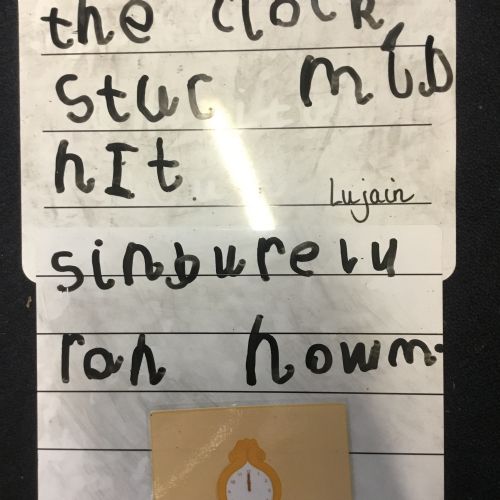 the clock
stuc mib
nIt.
Lujain
sinburelu
ran howm.